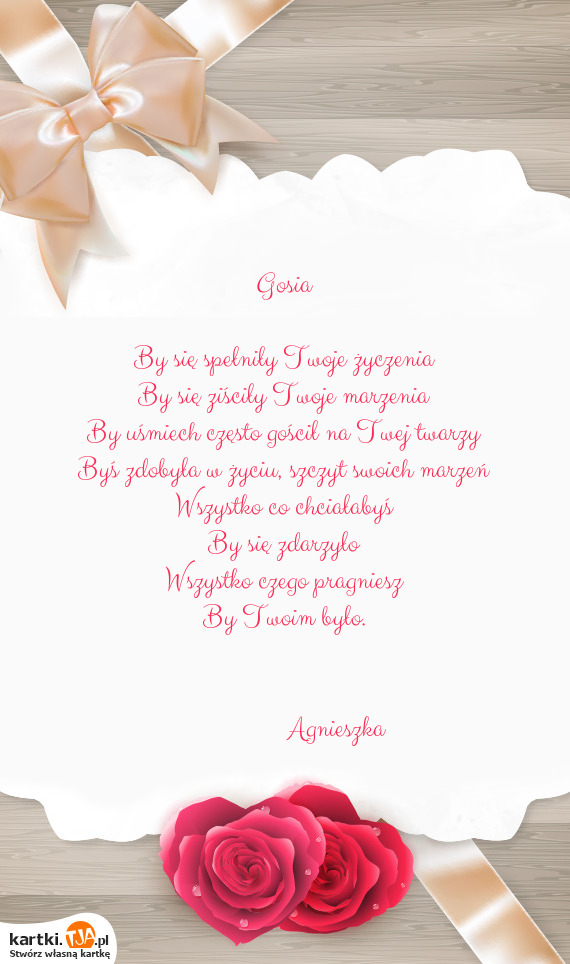 Gosia
By się spełniły Twoje życzenia
By się ziściły Twoje marzenia
By uśmiech często gościł na Twej twarzy
Byś zdobyła w życiu, szczyt swoich marzeń
Wszystko co chciałabyś
By się zdarzyło
Wszystko czego pragniesz
By Twoim było.
Agnieszka
kartki.TJA.pl
Stwórz własną kartkę